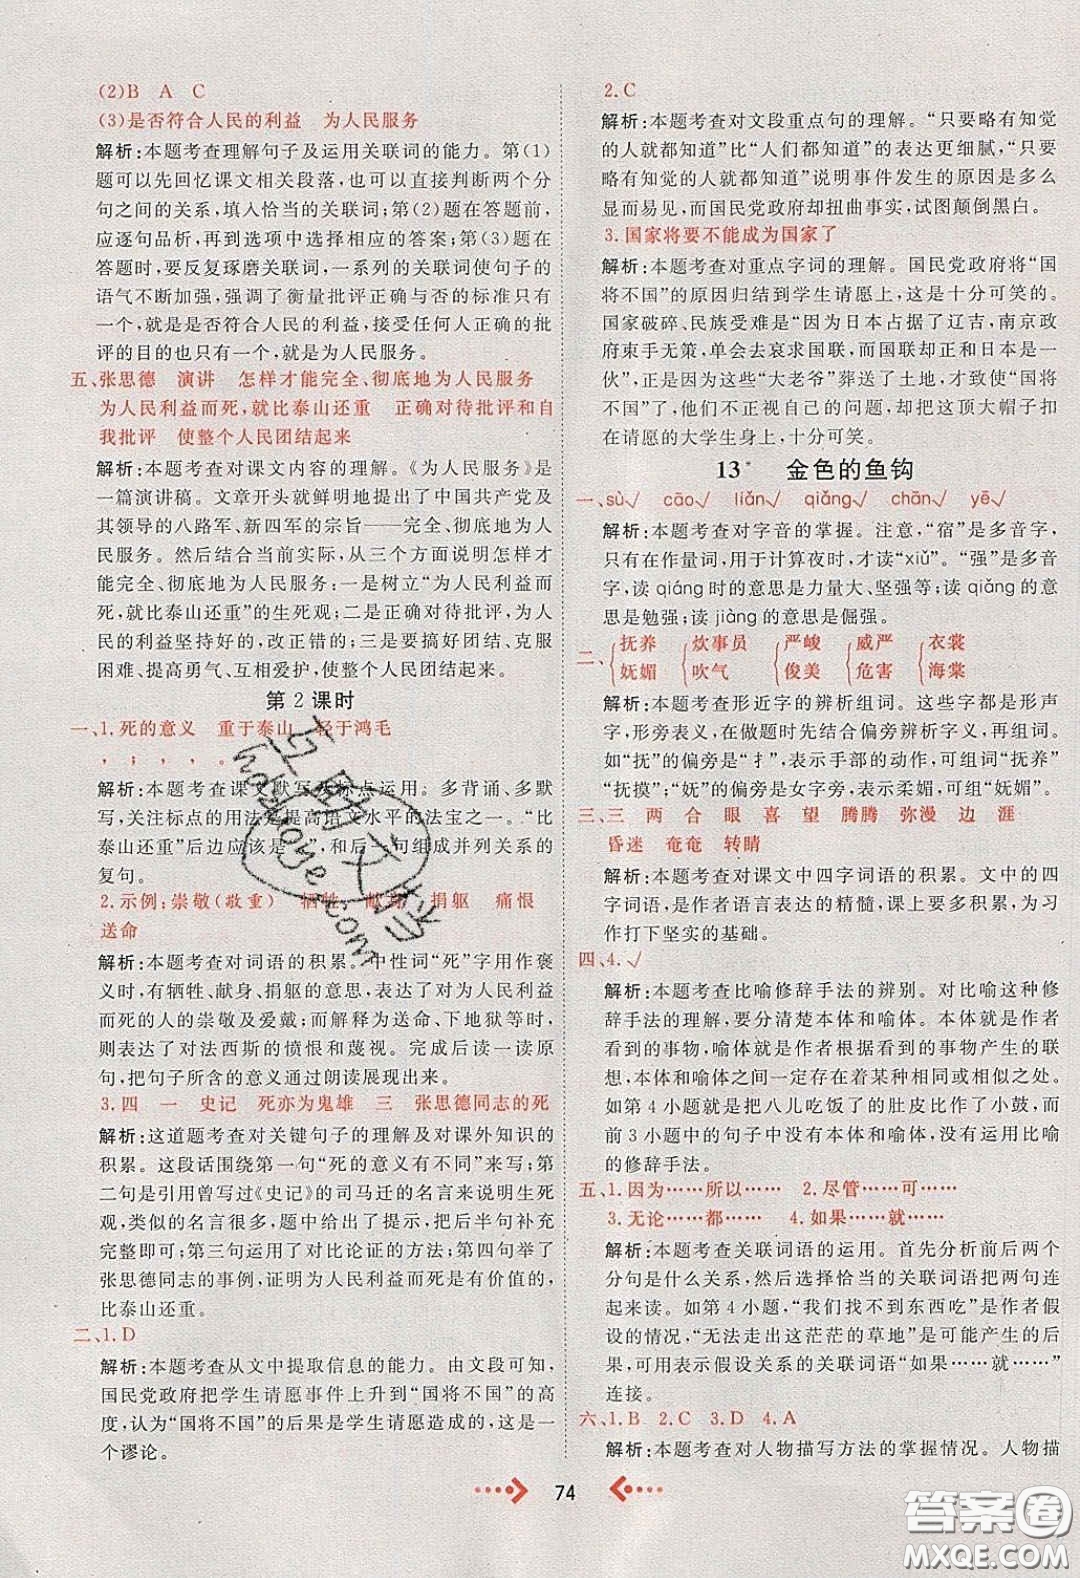 (2)B A C
(3)是否符合人民的利益 为人民服务
解析:本题考查理解句子及运用关联词的能力。第(1)
题可以先回忆课文相关段落,也可以直接判断两个分
句之间的关系,填入恰当的关联词;第(2)题在答题前,
应逐句品析,再到选项中选择相应的答案;第(3)题在
答题时,要反复琢磨关联词,一系列的关联词使句子的
语气不断加强,强调了衡量批评正确与否的标准只有
一个,就是是否符合人民的利益,接受任何人正确的批
评的目的也只有一个,就是为人民服务。
五、张思德 演讲 怎样才能完全、彻底地为人民服务
为人民利益而死,就比泰山还重 正确对待批评和自
我批评 使整个人民团结起来
解析:本题考查对课文内容的理解。《为人民服务》是
一篇演讲稿。文章开头就鲜明地提出了中国共产党及
其领导的八路军、新四军的宗旨——完全、彻底地为人
民服务。然后结合当前实际,从三个方面说明怎样才
能完全、彻底地为人民服务:一是树立“为人民利益而
死,就比泰山还重”的生死观;二是正确对待批评,为人
民的利益坚持好的,改正错的;三是要搞好团结、克服
困难、提高勇气、互相爱护,使整个人民团结起来。
第2课时
一、1.死的意义 重于泰山 轻于鸿毛
, ; , , 。
解析:本题考查课文默写及标点运用。多背诵、多默
写,关注标点的用法是提高语文水平的法宝之一。“比
泰山还重”后边应该是“;”,和后一句组成并列关系的
复句。
2.示例:崇敬(敬重) 牺牲 献身 捐躯 痛恨
送命
解析:本题考查对词语的积累。中性词“死”字用作褒
义时,有牺牲、献身、捐躯的意思,表达了对为人民利益
而死的人的崇敬及爱戴;而解释为送命、下地狱等时,
则表达了对法西斯的愤恨和蔑视。完成后读一读原
句,把句子所含的意义通过朗读展现出来。
3.四 一 史记 死亦为鬼雄 三 张思德同志的死
解析:这道题考查对关键句子的理解及对课外知识的
积累。这段话围绕第一句“死的意义有不同”来写;第
二句是引用曾写过《史记》的司马迁的名言来写生死
观,类似的名言有很多,题中给出前半句,把后半句补充
完整即可;第三句运用了对比论证的方法;第四句举了
张思德同志的事例,证明为人民利益而死是有价值的,
比泰山还重。
二、1.D
解析:本题考查从文中提取信息的能力。由文段可知,
国民党政府把学生请愿事件上升到“国将不国”的高
度,认为“国将不国”的后果是学生请愿造成的,这是一
个谬论。
2.C
解析:本题考查对文段重点句的理解。“只要略有知觉
的人就都知道”比“人们都知道”的表达更细腻,“只要
略有知觉的人就都知道”说明事件发生的原因是多么
显而易见,而国民党政府却扭曲事实,试图颠倒黑白。
3.国家将要不能成为国家了
解析:本题考查对重点字词的理解。国民党政府将“国
将不国”的原因归结到学生请愿上,这是十分可笑的。
国家破碎、民族受难是“因为日本占据了辽吉,南京政
府束手无策,单会去哀求国联,而国联却正和日本是一
伙”。正是因为这些“大老爷”葬送了土地,才导致“国将
不国”了,他们不正视自己的问题,却把这顶大帽子扣
在请愿的大学生身上,十分可笑。
13* 金色的鱼钩
一、sù√ cāo√ liǎn√ qiǎng√ chān√ yē√
解析:本题考查对字音的掌握。注意,“宿”是多音字,
只有在作量词,用于计算夜时,才读“xiǔ”。“强”是多音
字,读 qiáng 时的意思是力量大、坚强等;读 qiǎng 的意
思是勉强;读 jiàng 的意思是倔强。
二、抚养 炊事员 严峻 威严 衣裳
妩媚 吹气 俊美 危害 海棠
解析:本题考查形近字的辨析组词。这些字都是形声
字,形旁表义,在做题时先结合偏旁辨析字义,再组词。
如“抚”的偏旁是“扌”,表示手部的动作,可组词“抚养”
“抚摸”;“妩”的偏旁是女字旁,表示柔媚,可组“妩媚”。
三、三 两 合 眼 喜 望 腾腾 弥漫 边 涯
昏迷 奄奄 转睛
解析:本题考查对课文中四字词语的积累。文中的四
字词语,是作者语言表达的精髓,课上要多积累,为习
作打下坚实的基础。
四、4.√
解析:本题考查比喻修辞手法的辨别。对比喻这种修
辞手法的理解,要分清楚本体和喻体。本体就是作者
看到的事物,喻体就是作者根据看到的事物产生的联
想,本体和喻体之间必须存在着某种相同或相似点。
如第 4 小题就是把八儿吃饭了的肚皮比作小鼓,而
前 3 小题中的句子中没有本体和喻体,没有运用比喻
的修辞手法。
五、1.因为……所以…… 2.尽管……可……
3.无论……都…… 4.如果……就……
解析:本题考查关联词语的运用。首先分析前后两个
分句是什么关系,然后选择恰当的关联词语把两句连
起来读。如第 4 小题,“我们找不到东西吃”是作者假
设的情况,“无法走出这茫茫的草地”是产生的严重后
果,可用表示假设关系的关联词语“如果……就……”
连接。
六、1.B 2.C 3.D 4.A
解析:本题考查对人物描写方法的掌握情况。人物描
74
答案圈
MXQE.COM